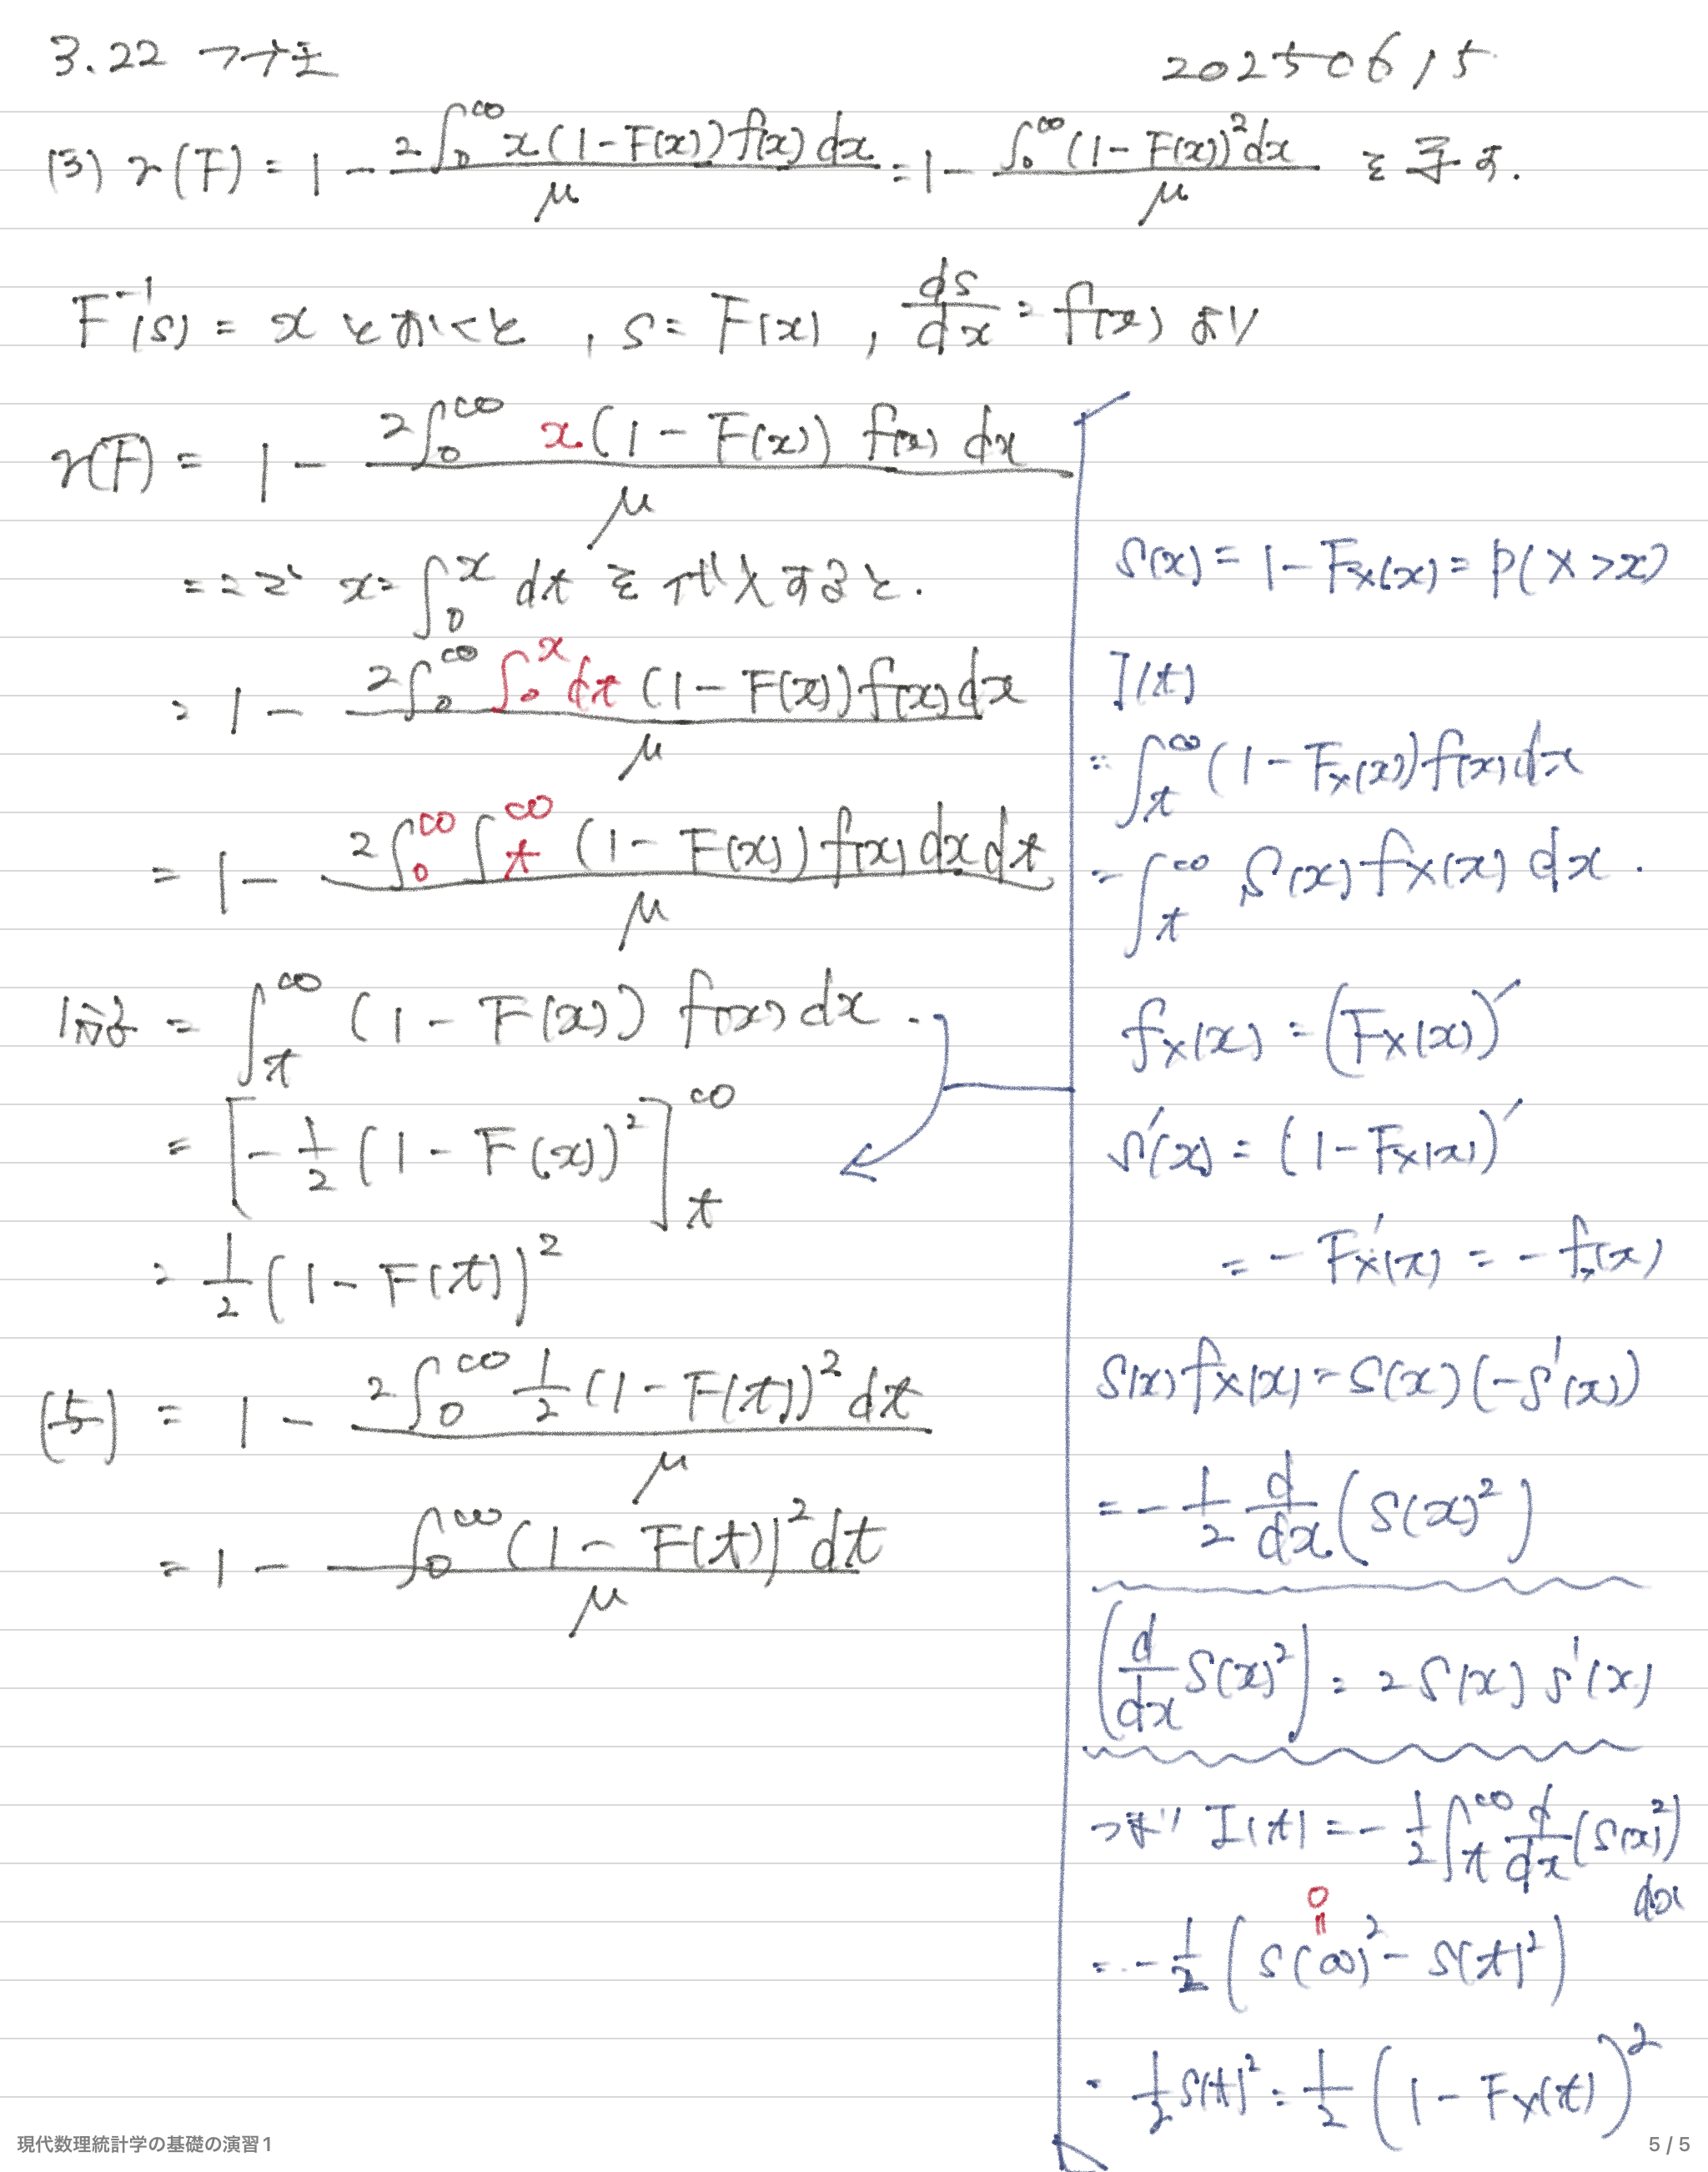 3.22 つづき
20250615
(3) γ(F) = 1 - 2∫₀^∞ x(1-F(x))f(x)dx / μ = 1 - ∫₀^∞ (1-F(x))²dx / μ を示す.
F⁻¹(s) = x とおくと, s = F(x), ds/dx = f(x) より
γ(F) = 1 - 2∫₀^∞ x(1-F(x)) f(x) dx / μ
ここで x = ∫₀^x dt を代入すると.
= 1 - 2∫₀^∞ ∫₀^x dt (1-F(x)) f(x) dx / μ
= 1 - 2∫₀^∞ ∫_t^∞ (1-F(x)) f(x) dx dt / μ
= ∫_t^∞ (1-F(x)) f(x) dx.
= [-1/2 (1-F(x))²]_t^∞
= 1/2 (1-F(t))²
= 1 - 2∫₀^∞ 1/2 (1-F(t))² dt / μ
= 1 - ∫₀^∞ (1-F(t))² dt / μ
S(x) = 1 - F_X(x) = P(X > x)
I(t)
= ∫_t^∞ (1-F_X(x)) f(x) dx
= ∫_t^∞ S(x) f_X(x) dx.
f_X(x) = (F_X(x))′
S′(x) = (1-F_X(x))′
= -F_X′(x) = -f_X(x)
S(x) f_X(x) = S(x)(-S′(x))
= -1/2 d/dx (S(x)²)
(d/dx S(x)²) = 2S(x) S′(x)
つまり I(t) = -1/2 ∫_t^∞ d/dx (S(x)²) dx
0
॥
= -1/2 (S(∞)² - S(t)²)
= 1/2 S(t)² = 1/2 (1-F_X(t))²
現代数理統計学の基礎の演習1
5 / 5